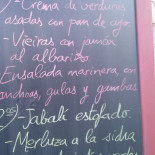 - Crema de verduras
asadas con pan de ajo.
- Vieiras con jamón
al albariño
Ensalada marinera con
anchoas, gulas y gambas
- Jabalí estofado.
- Merluza a la sidra